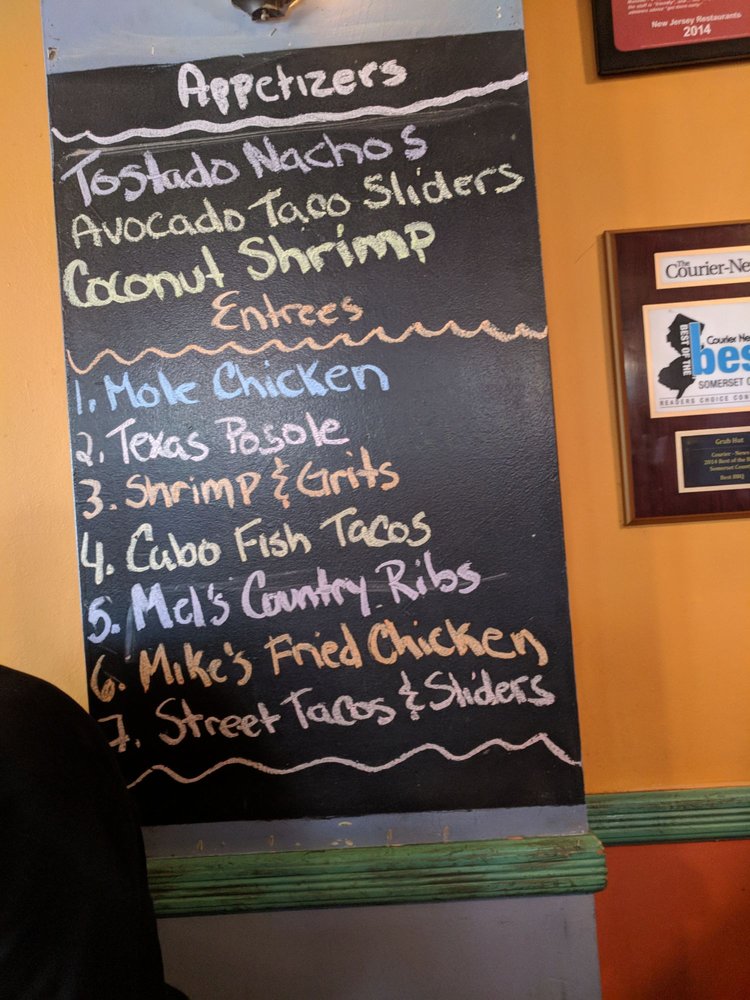 Appetizers
Tostado Nachos
Avocado Taco Sliders
Coconut Shrimp
Entrees
1. Mole Chicken
2. Texas Posole
3. Shrimp & Grits
4. Cabo Fish Tacos
5. Mel's Country Ribs
6. Mike's Fried Chicken
7. Street Tacos & Sliders
New Jersey Restaurants
2014
The
Courier-Ne
BEST OF THE
Courier Ne
bes
SOMERSET C
READERS CHOICE CON
Grub Hut
Courier - News
2014 Best of the
Somerset Coun
Best BBQ